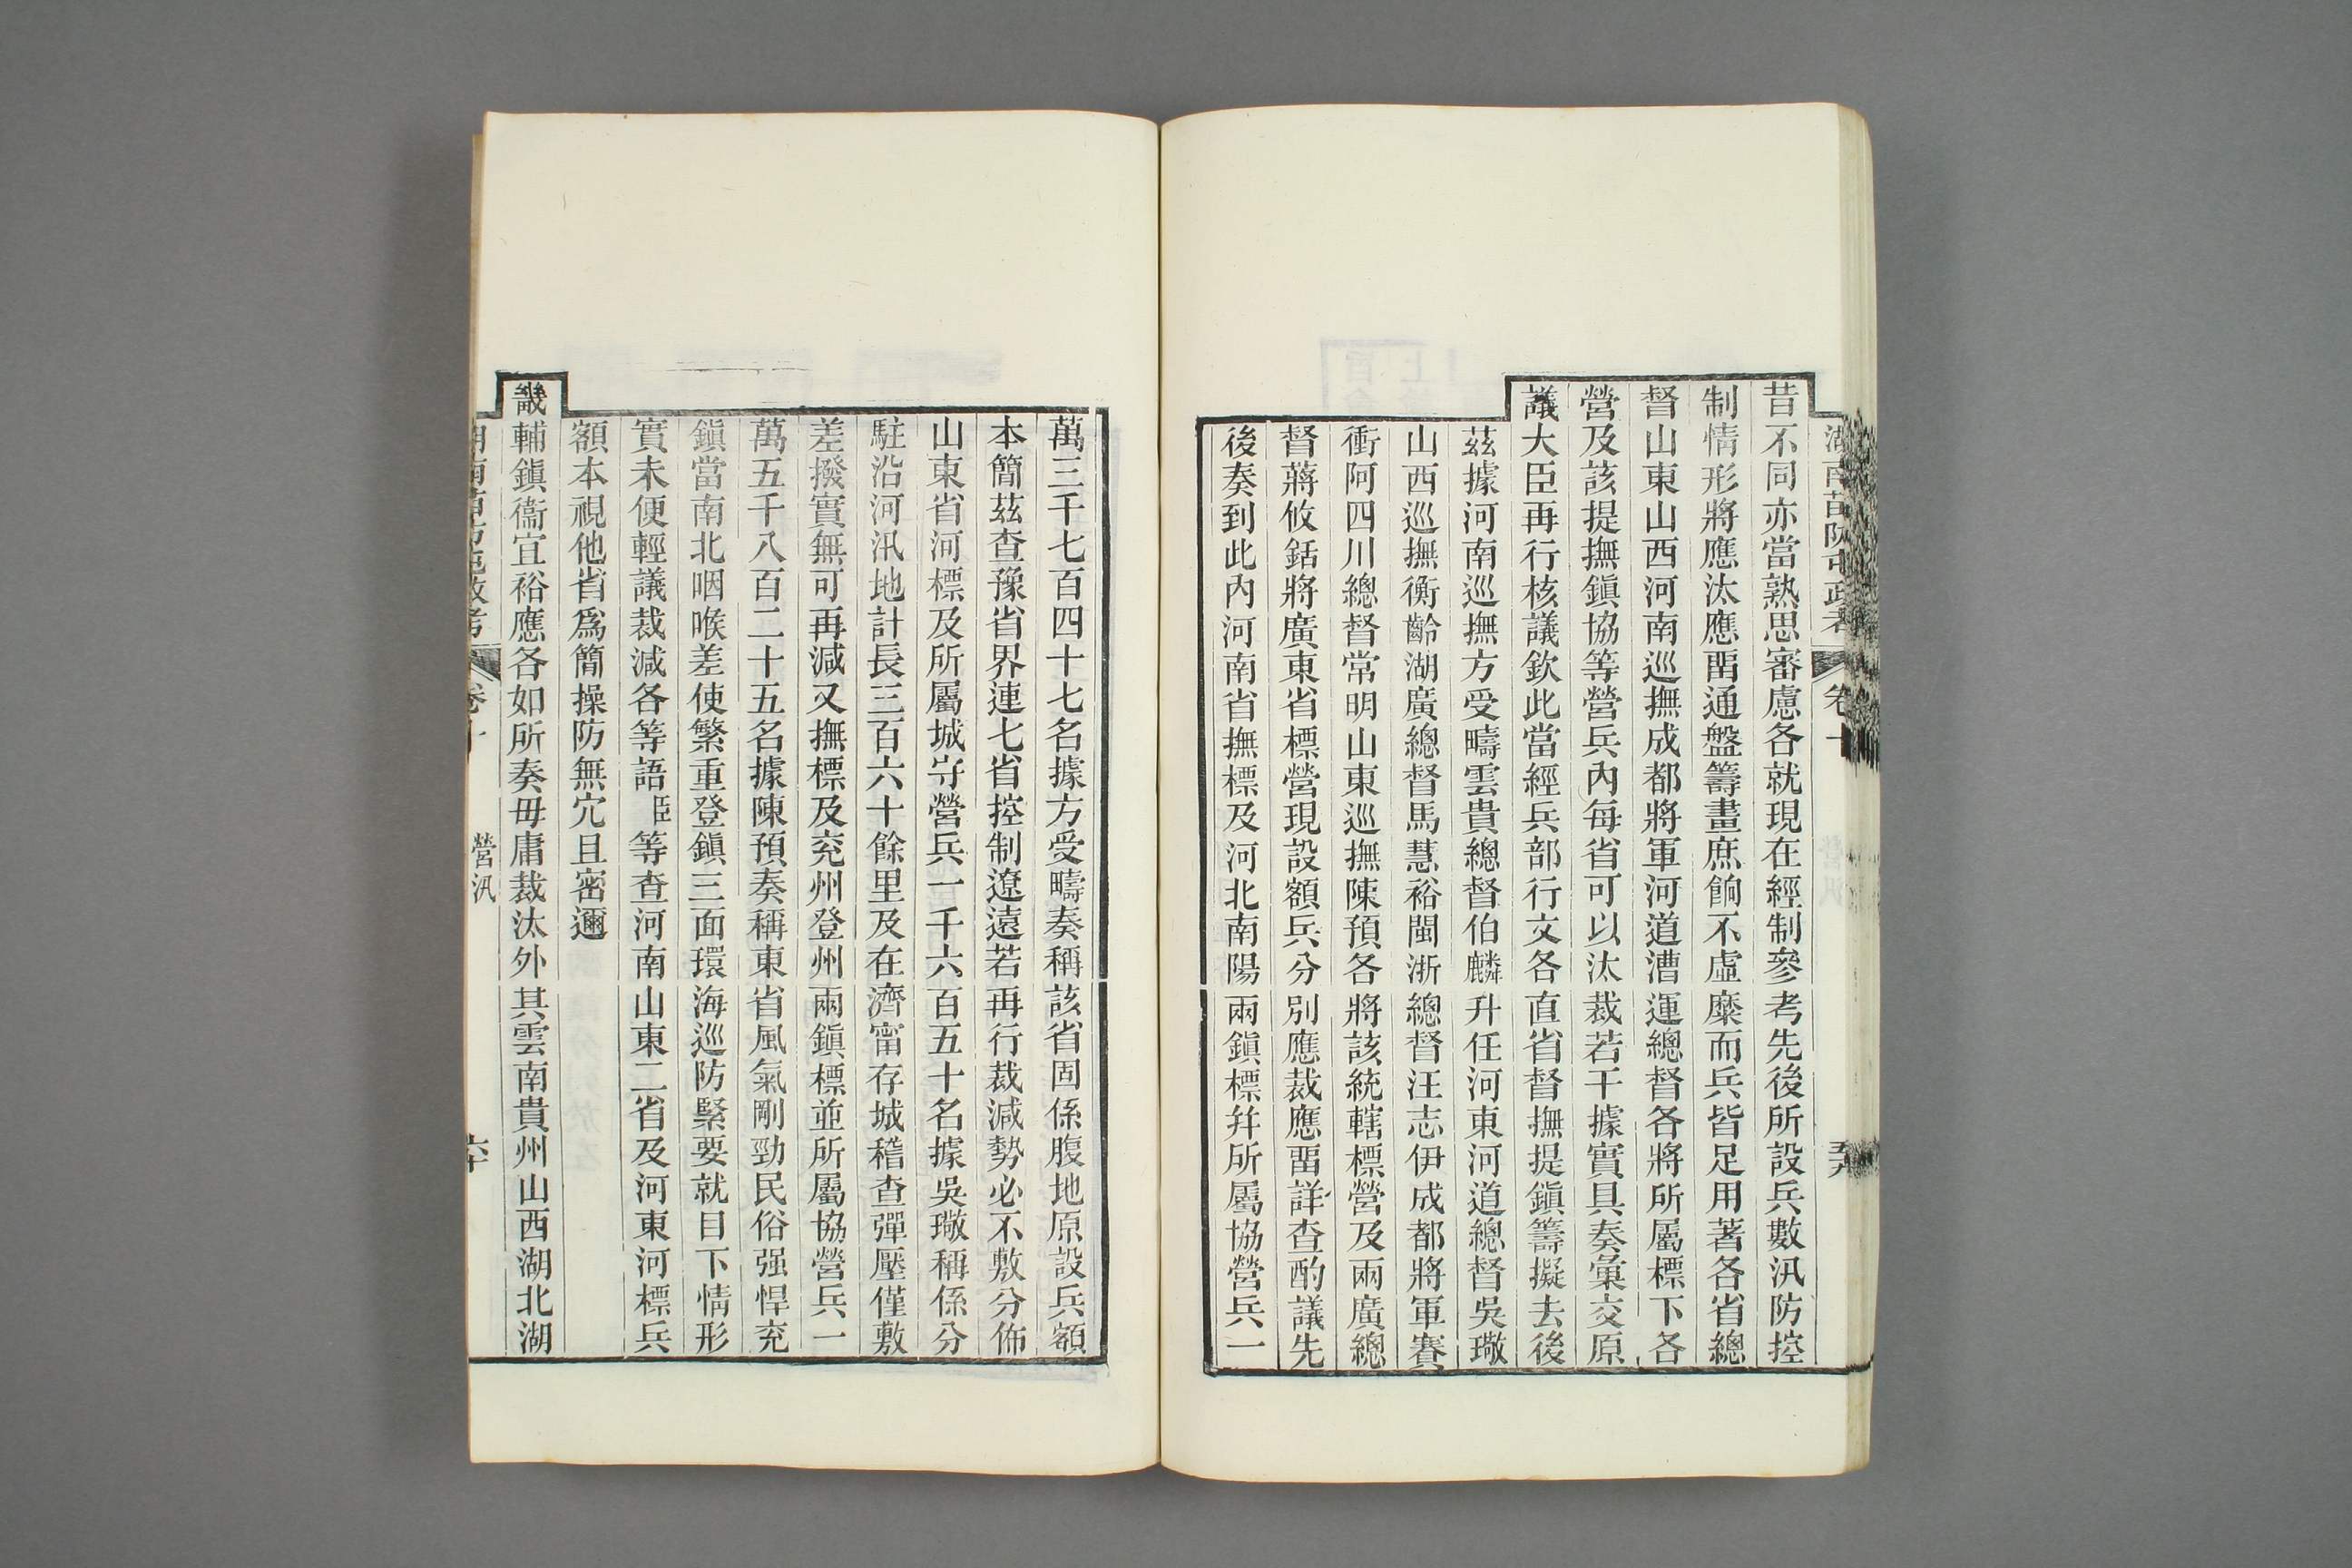 湖南苗防屯政考
卷十
昔不同亦當熟思審慮各就現在經制參考先後所設兵數汛防控
制情形將應汰應畱通盤籌畫庶餉不虛糜而兵皆足用著各省總
督山東山西河南巡撫成都將軍河道漕運總督各將所屬標下各
營及該提撫鎮協等營兵內每省可以汰裁若干據實具奏彙交原
議大臣再行核議欽此當經兵部行文各直省督撫提鎮籌擬去後
茲據河南巡撫方受疇雲貴總督伯麟升任河東河道總督吳璥
山西巡撫衡齡湖廣總督馬慧裕閩浙總督汪志伊成都將軍賽
衝阿四川總督常明山東巡撫陳預各將該統轄標營及兩廣總
督蔣攸銛將廣東省標營現設額兵分別應裁應畱詳查酌議先
後奏到此內河南省撫標及河北南陽兩鎮標幷所屬協營兵一
萬三千七百四十七名據方受疇奏稱該省固係腹地原設兵額
本簡茲查豫省界連七省控制遼遠若再行裁減勢必不敷分佈
山東省河標及所屬城守營兵一千六百五十名據吳璥稱係分
駐沿河汛地計長三百六十餘里及在濟甯存城稽查彈壓僅敷
差撥實無可再減又撫標及兖州登州兩鎮標並所屬協營兵一
萬五千八百二十五名據陳預奏稱東省風氣剛勁民俗强悍兖
鎮當南北咽喉差使繁重登鎮三面環海巡防緊要就目下情形
實未便輕議裁減各等語臣等查河南山東二省及河東河標兵
額本視他省爲簡操防無冗且密邇
畿輔鎮衞宜裕應各如所奏毋庸裁汰外其雲南貴州山西湖北湖
湖南苗防屯政考
卷十
營汛
六十